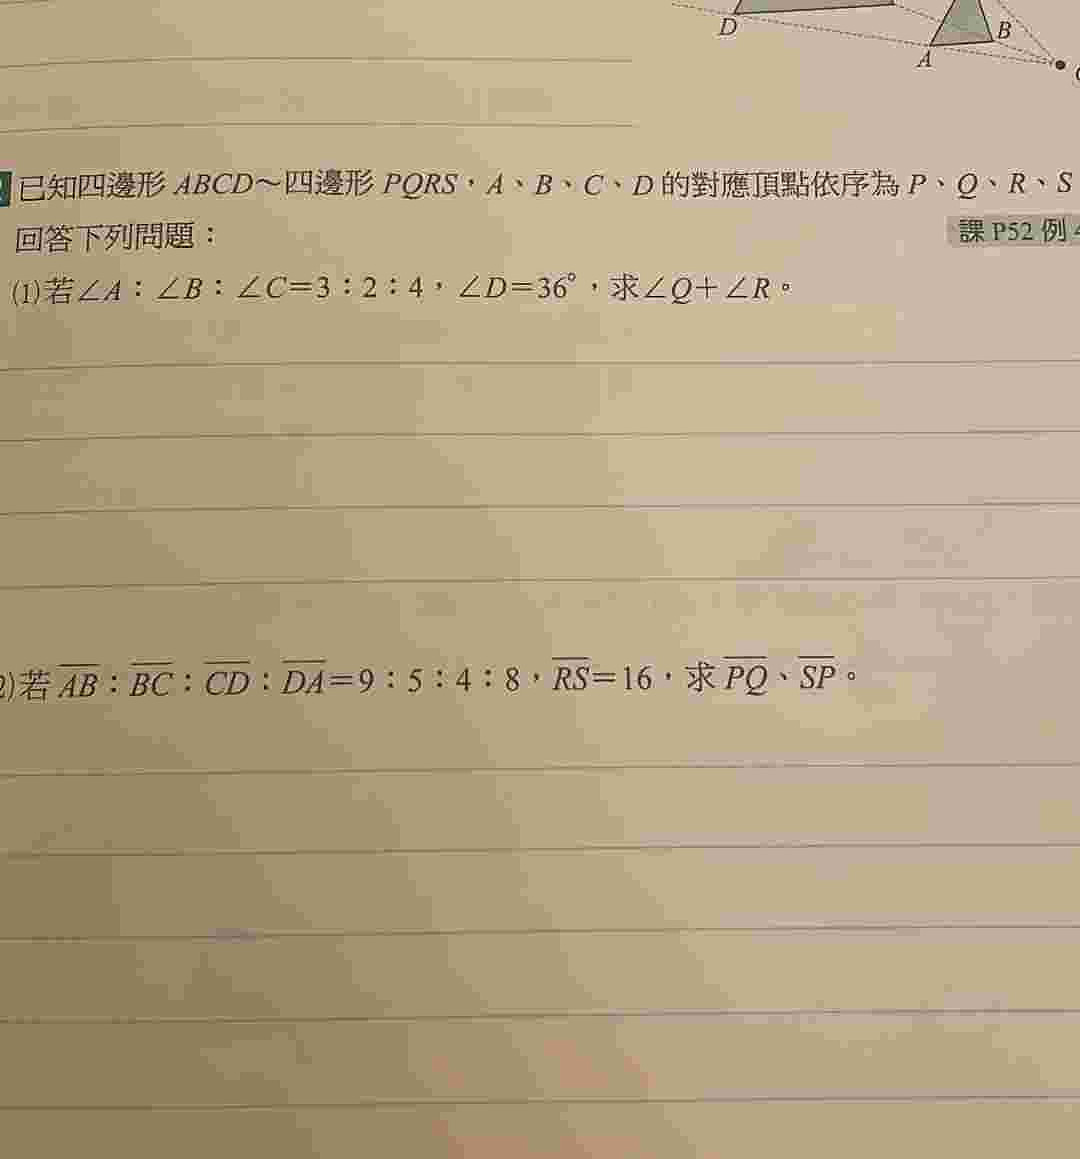 D
B
A
已知四邊形 ABCD～四邊形 PQRS，A、B、C、D 的對應頂點依序為 P、Q、R、S
回答下列問題：
課 P52 例
(1)若∠A：∠B：∠C＝3：2：4，∠D＝36°，求∠Q＋∠R。
2)若 \overline{AB}：\overline{BC}：\overline{CD}：\overline{DA}＝9：5：4：8，\overline{RS}＝16，求 \overline{PQ}、\overline{SP}。